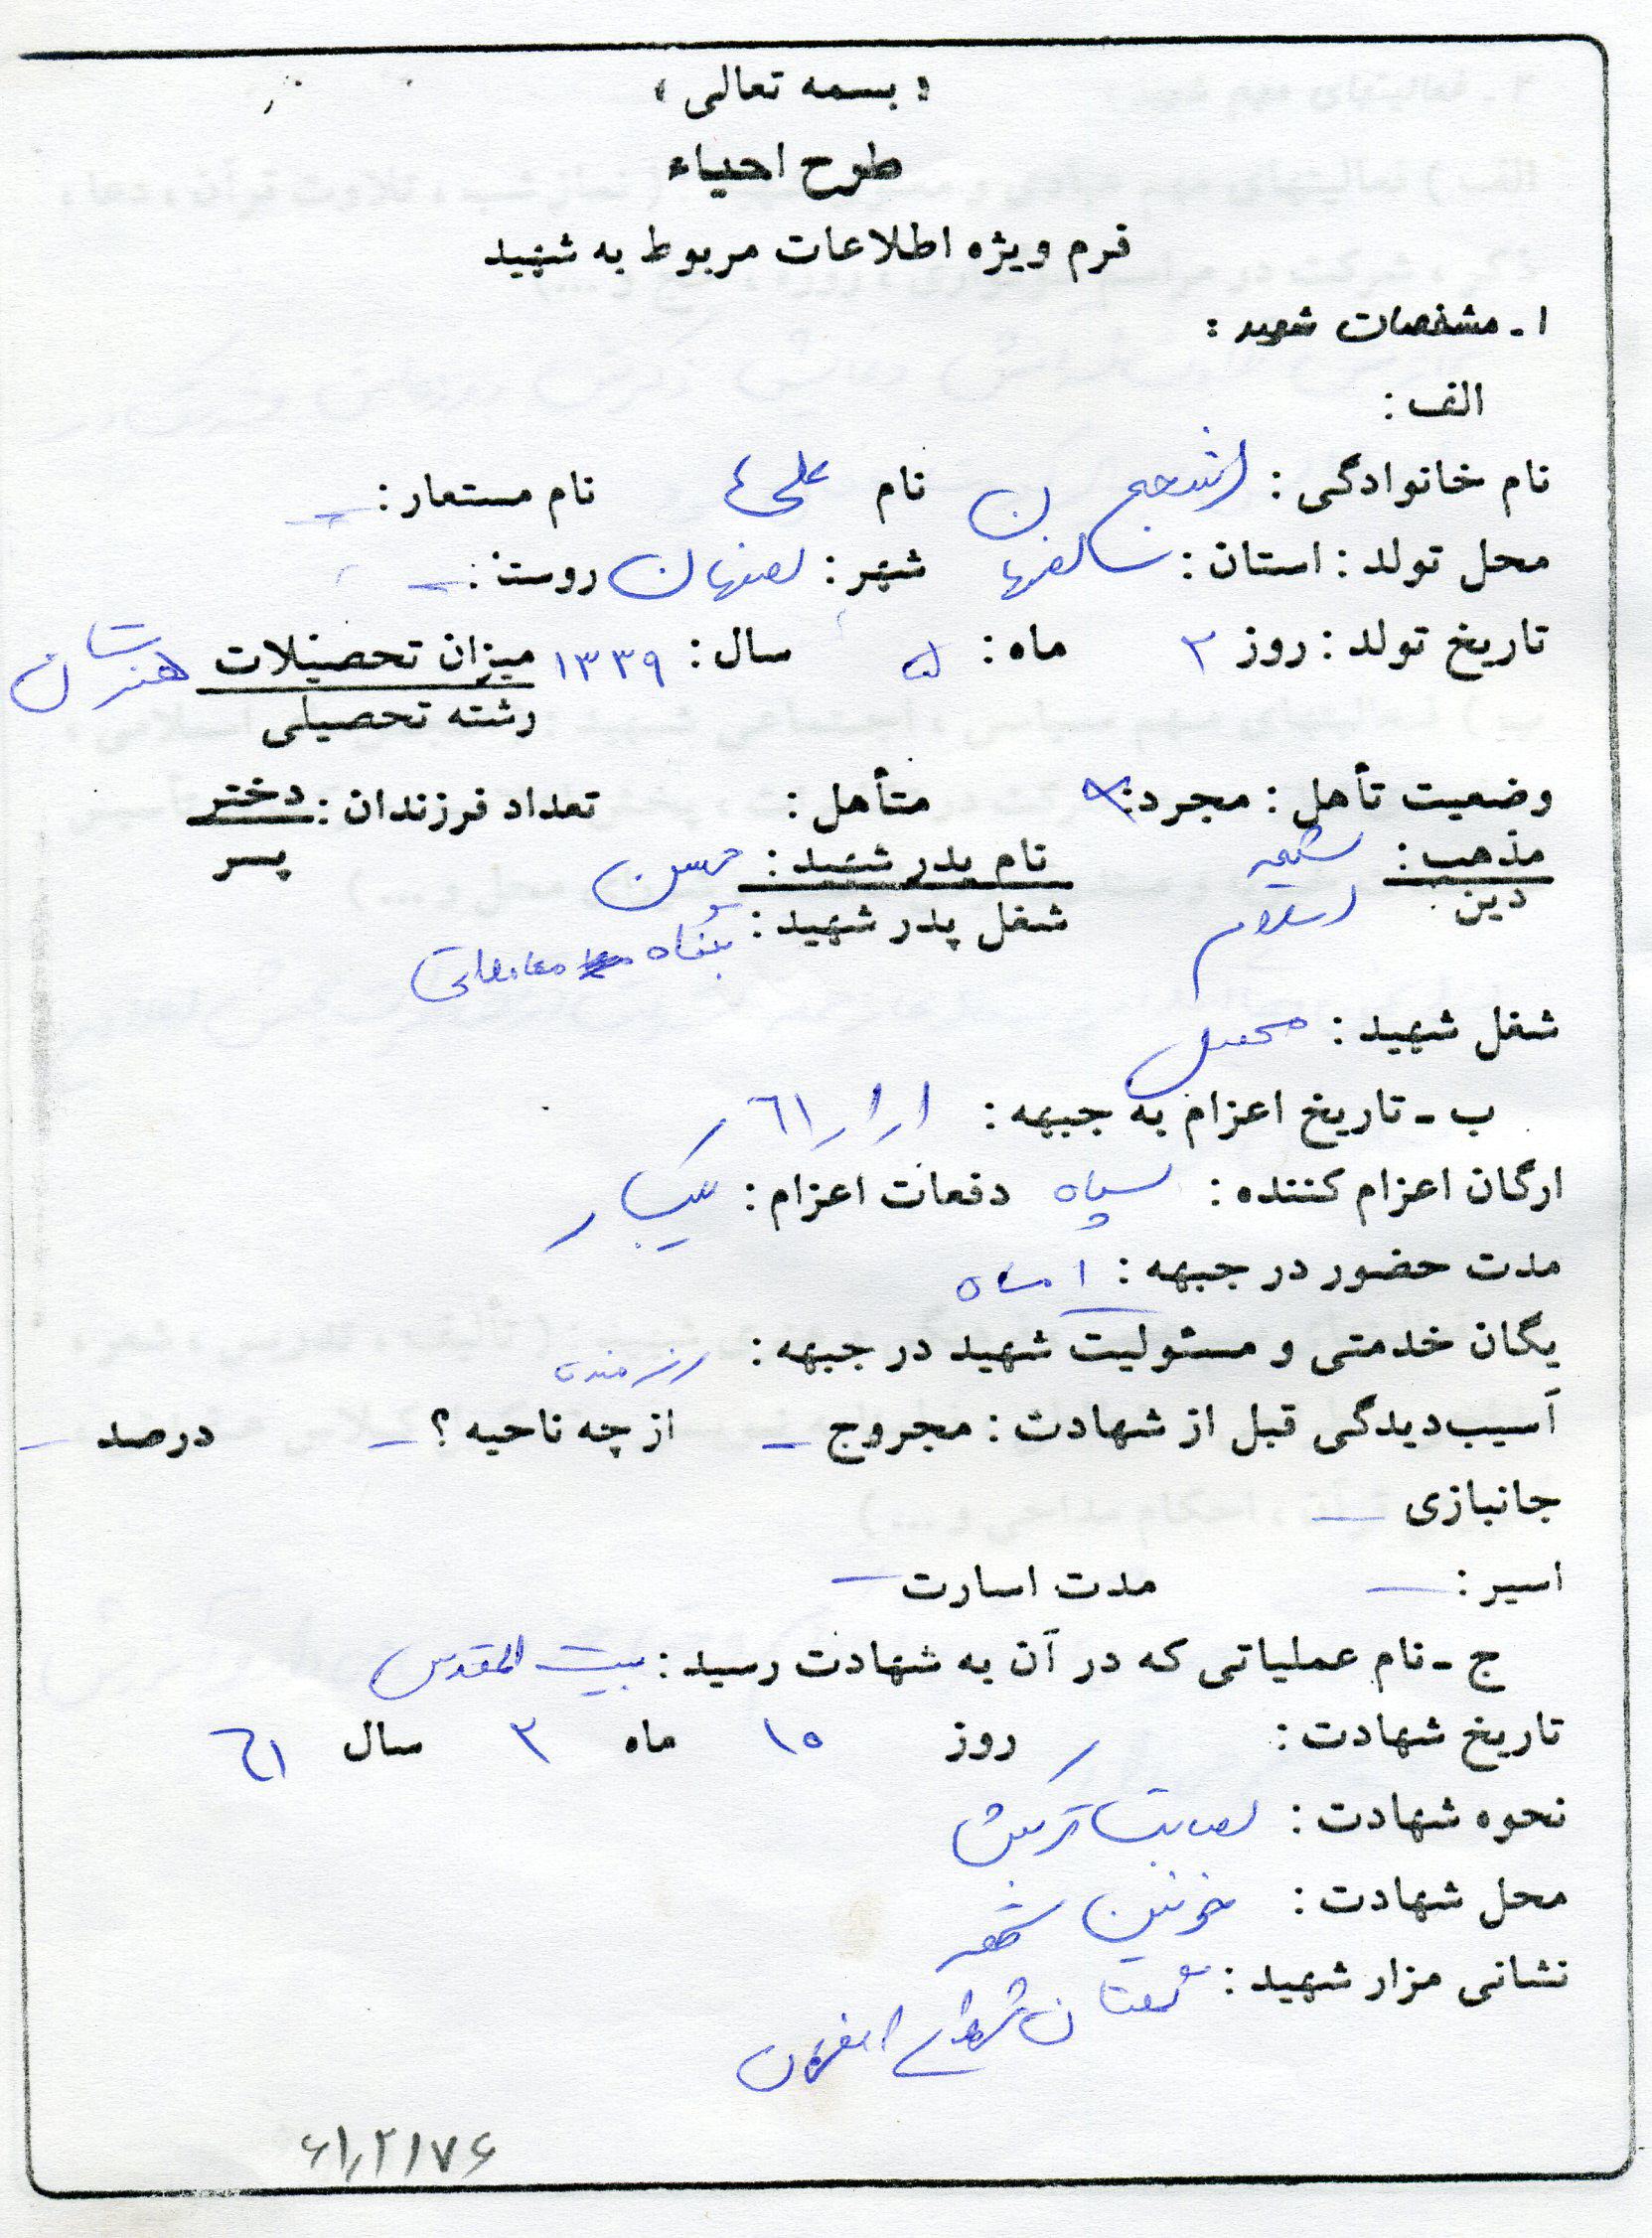 « بسمه تعالی »
طرح احیاء
فرم ویژه اطلاعات مربوط به شهید
۱ - مشخصات شهید :
الف :
نام خانوادگی : نام علی نام مستعار : —
محل تولد : استان : اصفهان شهر : اصفهان روستا : —
تاریخ تولد : روز ۲ ماه : ۵ سال : ۱۳۳۹ میزان تحصیلات هنرستان
رشته تحصیلی
وضعیت تأهل : مجرد : × متأهل : تعداد فرزندان : دختر
پسر
مذهب : شیعه نام پدر شهید : حسن
دین اسلام شغل پدر شهید : بنگاه معاملاتی
شغل شهید : محصل
ب - تاریخ اعزام به جبهه : ۶۱/۱/۱
ارگان اعزام کننده : سپاه دفعات اعزام : یکبار
مدت حضور در جبهه : ماه
یگان خدمتی و مسئولیت شهید در جبهه : رزمنده
آسیب‌دیدگی قبل از شهادت : مجروح — از چه ناحیه ؟ — درصد —
جانبازی —
اسیر : — مدت اسارت —
ج - نام عملیاتی که در آن به شهادت رسید : بیت المقدس
تاریخ شهادت : روز ۱۵ ماه ۲ سال ۶۱
نحوه شهادت : اصابت ترکش
محل شهادت : خونین شهر
نشانی مزار شهید : گلستان شهدای اصفهان
۶۱٫۲۱۷۶